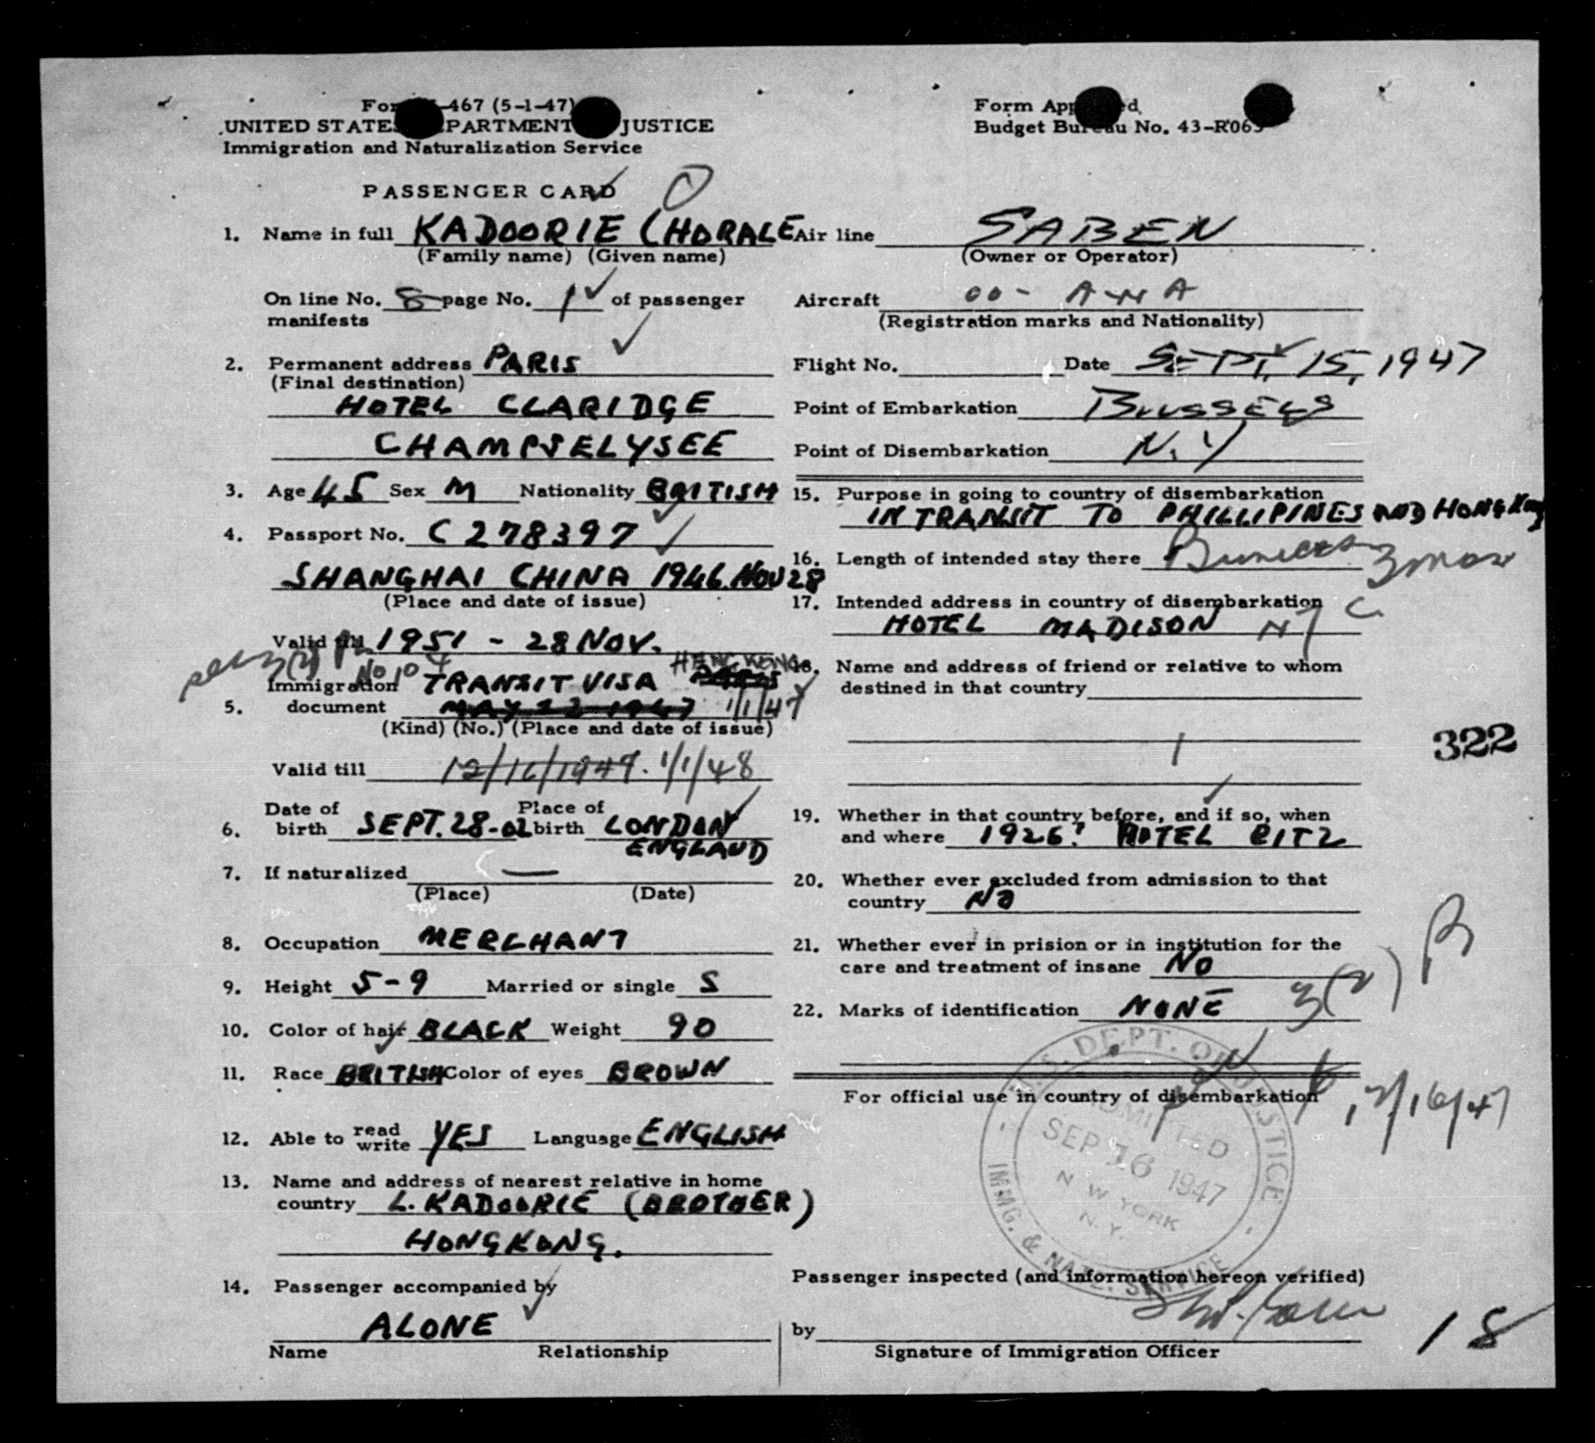 467 (5-1-47)
UNITED STATES DEPARTMENT JUSTICE
Immigration and Naturalization Service
Form Approved
Budget Bureau No. 43-R065
PASSENGER CARD
1. Name in full KADOORIE (HORACE
(Family name) (Given name)
On line No. 8 page No. 1 of passenger
manifests
2. Permanent address PARIS
(Final destination)
HOTEL CLARIDGE
CHAMPSELYSEE
3. Age 45 Sex M Nationality BRITISH
4. Passport No. C 278397
SHANGHAI CHINA 1946 NOV 28
(Place and date of issue)
Valid till 1951 - 28 NOV.
No 104
Immigration TRANSIT VISA HONG KONG PARIS
5. document MAY 22 1947 1/1/47
(Kind) (No.) (Place and date of issue)
Valid till 12/16/1947. 1/1/48
6. Date of birth SEPT. 28-02 Place of birth LONDON
ENGLAND
7. If naturalized —
(Place) (Date)
8. Occupation MERCHANT
9. Height 5-9 Married or single S
10. Color of hair BLACK Weight 90
11. Race BRITISH Color of eyes BROWN
12. Able to read write YES Language ENGLISH
13. Name and address of nearest relative in home
country L. KADOORIE (BROTHER)
HONGKONG.
14. Passenger accompanied by
ALONE
Name Relationship
Air line SABEN
(Owner or Operator)
Aircraft OO - A
(Registration marks and Nationality)
Flight No. Date SEPT, 15, 1947
Point of Embarkation BRUSSELS
Point of Disembarkation N.Y
15. Purpose in going to country of disembarkation
IN TRANSIT TO PHILLIPINES AND HONG KONG
16. Length of intended stay there 3 mos
17. Intended address in country of disembarkation
HOTEL MADISON N Y C
18. Name and address of friend or relative to whom
destined in that country
322
19. Whether in that country before, and if so, when
and where 1926? HOTEL RITZ
20. Whether ever excluded from admission to that
country NO
21. Whether ever in prision or in institution for the
care and treatment of insane NO
22. Marks of identification NONE
3(2)
For official use in country of disembarkation
12/16/47
U.S. DEPT. OF JUSTICE
ADMITTED
SEP 16 1947
N W YORK
N. Y.
IMMG. & NATZ. SERVICE
Passenger inspected (and information hereon verified)
by
Signature of Immigration Officer
18